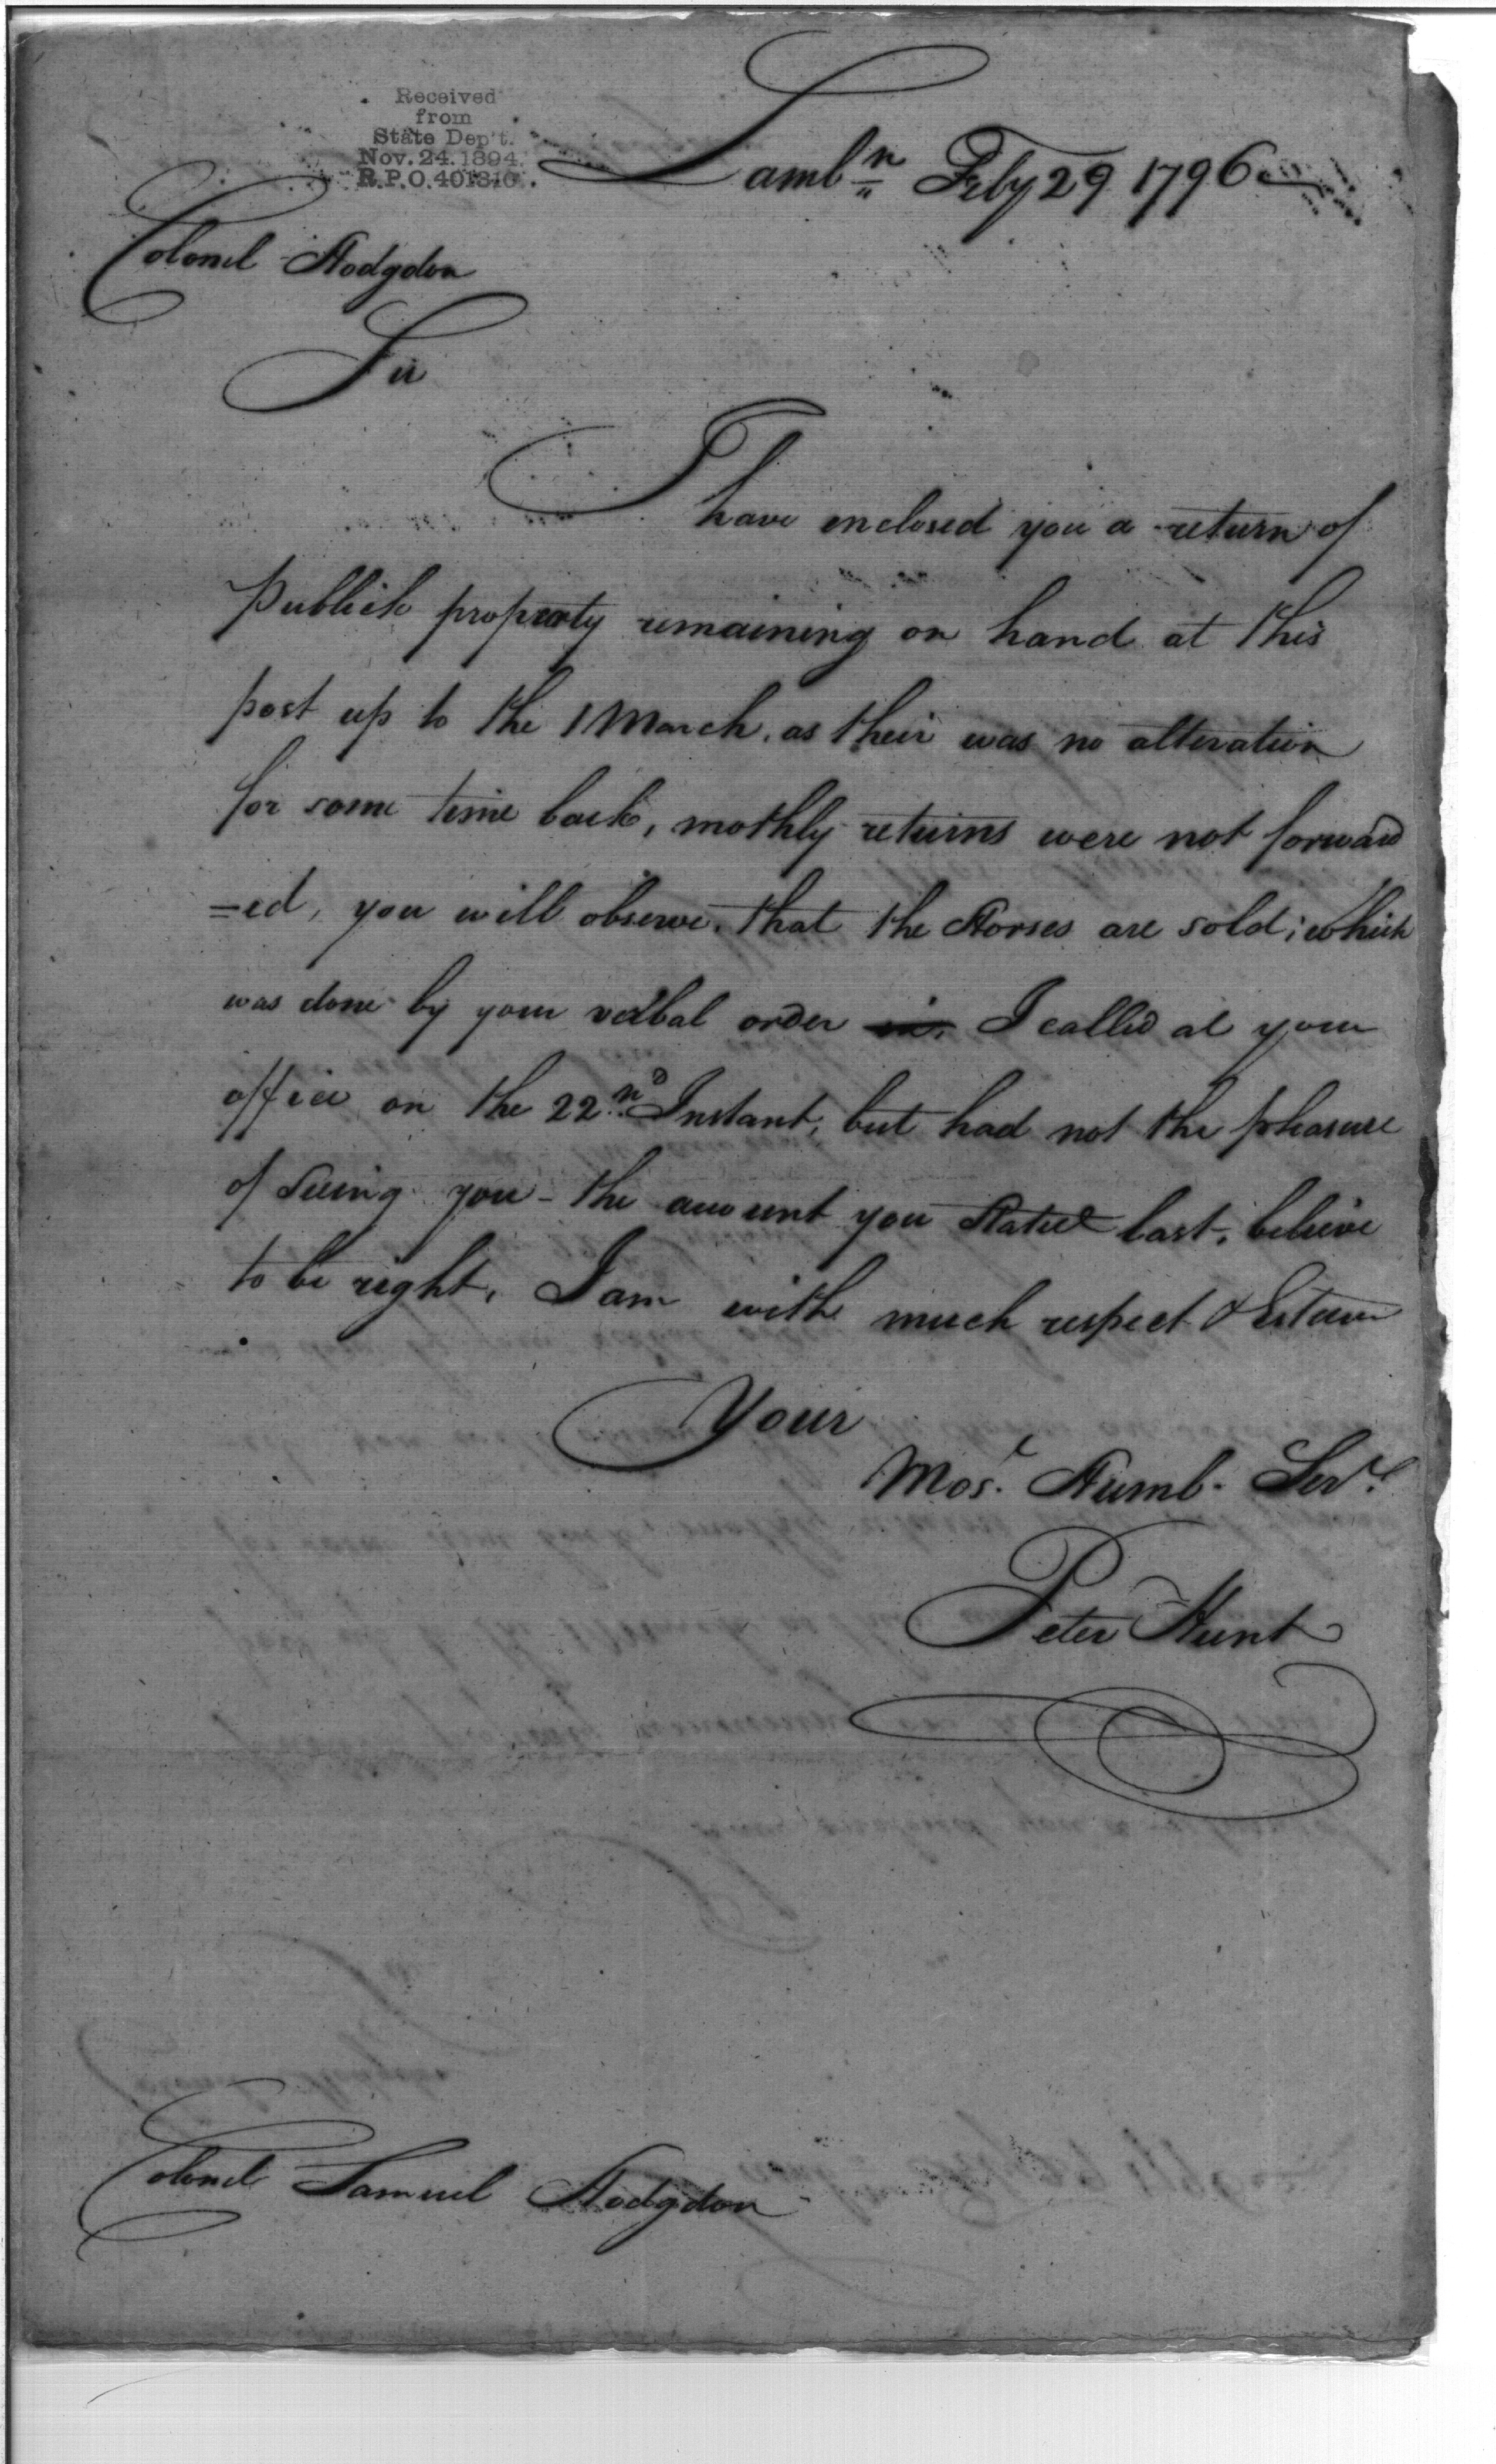 Received
from
State Dep't.
Nov. 24. 1894.
R.P.O. 401316.
Lambn Feby 29 1796
Colonel Hodgdon
Sir
I have enclosed you a return of
Publick property remaining on hand at this
post up to the 1 March, as their was no alteration
for some time back, mothly returns were not forward
=ed, you will observe, that the Horses are sold; which
was done by your verbal order in, I called at your
office on the 22nd Instant, but had not the pleasure
of Seeing you - the amount you Stated last, believe
to be right, I am with much respect & Esteem
Your
Most Humb. Servt
Peter Hunt
Colonel Samuel Hodgdon